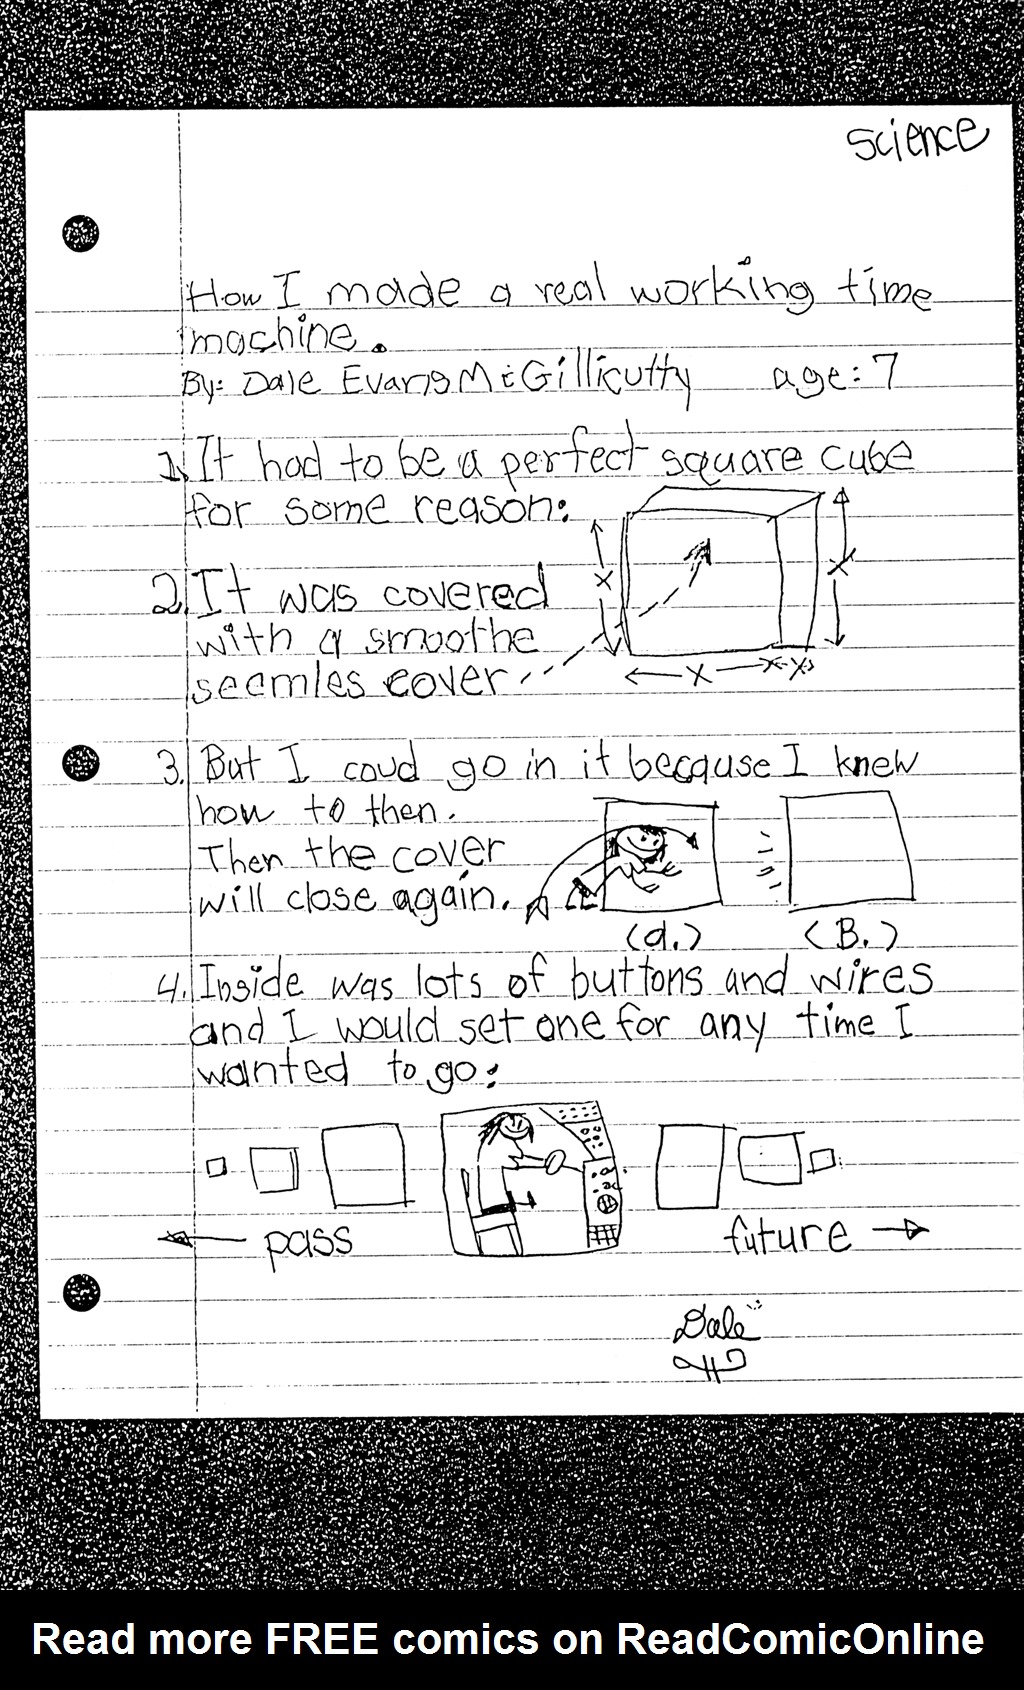 science
How I made a real working time
machine.
By: Dale Evans McGillicutty age: 7
1. It had to be a perfect square cube
for some reason:
X
X
2. It was covered
with a smoothe
seemles cover
X X
3. But I coud go in it because I knew
how to then.
Then the cover
will close again.
(a.) (B.)
4. Inside was lots of buttons and wires
and I would set one for any time I
wanted to go:
pass future
Dale
Read more FREE comics on ReadComicOnline